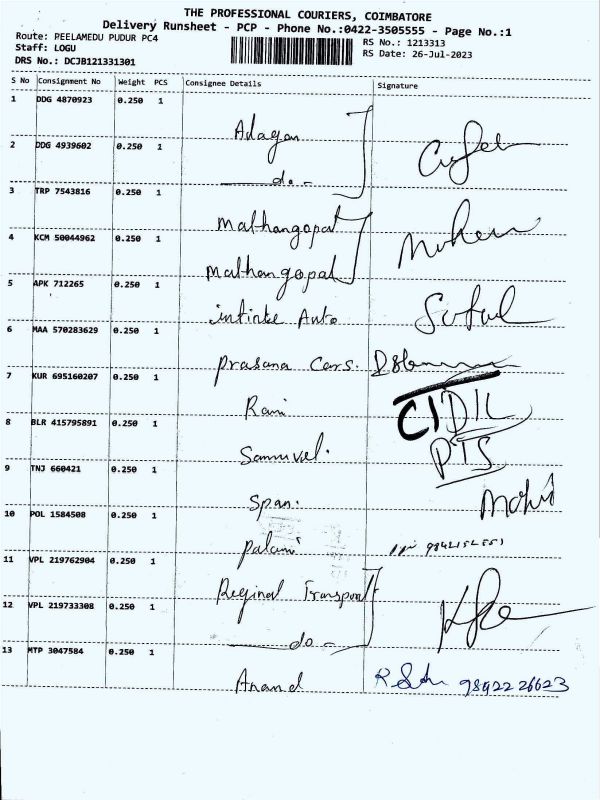 THE PROFESSIONAL COURIERS, COIMBATORE
Delivery Runsheet - PCP - Phone No.:0422-3505555 - Page No.:1
Route: PEELAMEDU PUDUR PC4
RS No.: 1213313
Staff: LOGU
RS Date: 26-Jul-2023
DRS No.: DCJB121331301
S No Consignment No Weight PCS Consignee Details Signature
1 DDG 4870923 0.250 1
Adagan
2 DDG 4939602 0.250 1
do -
3 TRP 7543816 0.250 1
Mathangopal
4 KCM 50044962 0.250 1
Mathangopal
5 APK 712265 0.250 1
infinite Auto
6 MAA 570283629 0.250 1
Prasana Cars.
7 KUR 695160207 0.250 1
Rani
8 BLR 415795891 0.250 1
Sammvel.
9 TNJ 660421 0.250 1
Span. Mohid
10 POL 1584508 0.250 1
Palani
11 VPL 219762904 0.250 1
Reginal Transport
12 VPL 219733308 0.250 1
do -
13 MTP 3047584 0.250 1
Anand 9892226623